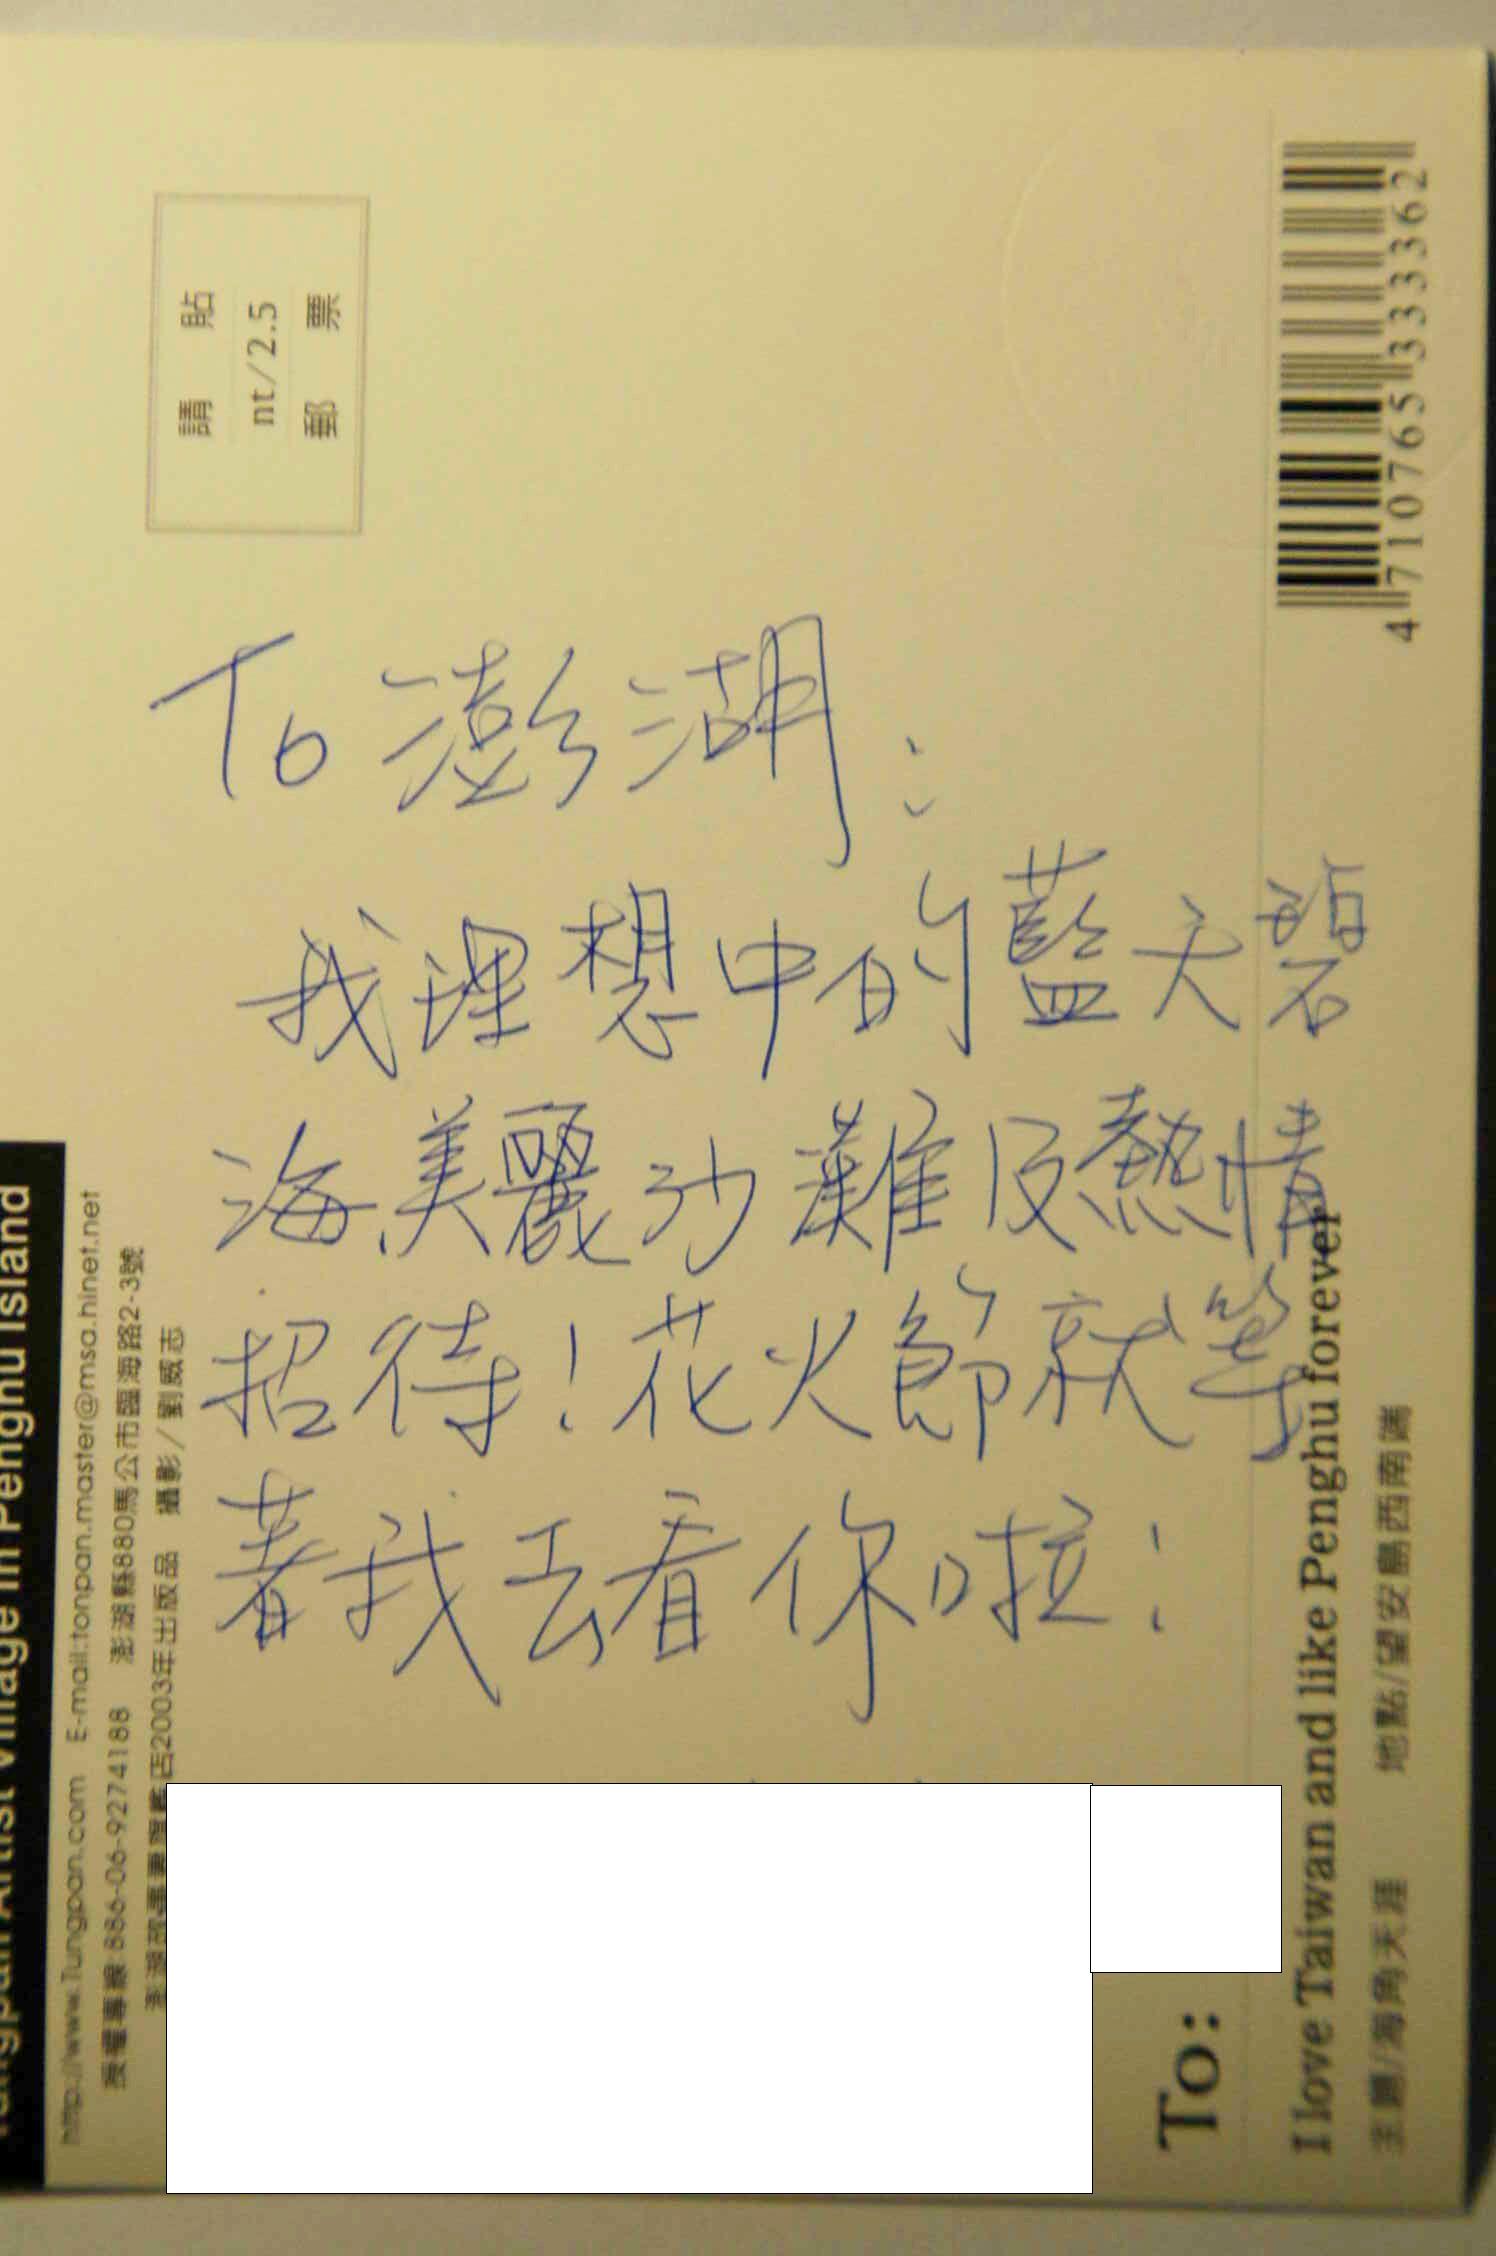 請 貼
nt/2.5
郵 票
To 澎湖：
我理想中的藍天碧
海美麗沙灘及熱情
招待！花火節就等
著我去看你啦！
Tungpan Artist Village in Penghu Island
http://www.Tungpan.com E-mail:tonpan.master@msa.hinet.net
授權專線:886-06-9274188 澎湖縣880馬公市臨海路2-3號
店2003年出版品 攝影／劉威志
To:
I love Taiwan and like Penghu forever
主題/海角天涯 地點/望安島西南端
4 710765 333362